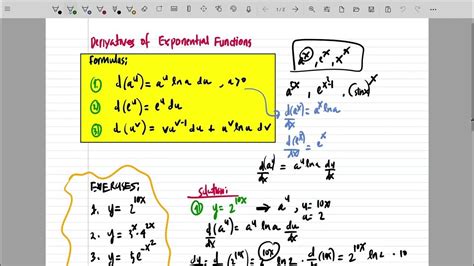 1/2
Derivatives of Exponential Functions
Formulas:
① d(a^u) = a^u ln a du , a>0
② d(e^u) = e^u du
③ d(u^v) = vu^(v-1) du + u^v ln u dv
a^x, e^x, x^x
a^5x, e^(x²-1), (sin x)^x
d(a^x)/dx = a^x ln a
d(e^x)/dx = e^x
d(a^u)/dx = a^u ln a dy/dx
EXERCISES:
1. y = 2^10x
2. y = 3^x · 4^2x
3. y = 5e^(-x²)
Solution:
#1 y = 2^10x → a^u , u = 10x
a = 2
d(a^u)/dx = a^u ln a du/dx
dy/dx = d(2^10x)/dx = 2^10x ln 2 · d(10x)/dx = 2^10x ln 2 · 10